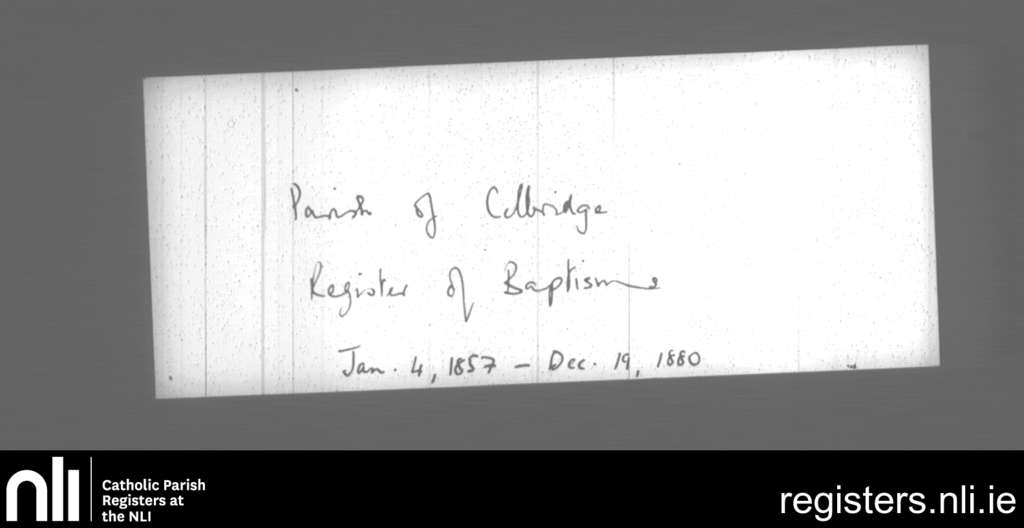 Parish of Celbridge
Register of Baptisms
Jan. 4, 1857 – Dec. 19, 1880
nli
Catholic Parish
Registers at
the NLI
registers.nli.ie